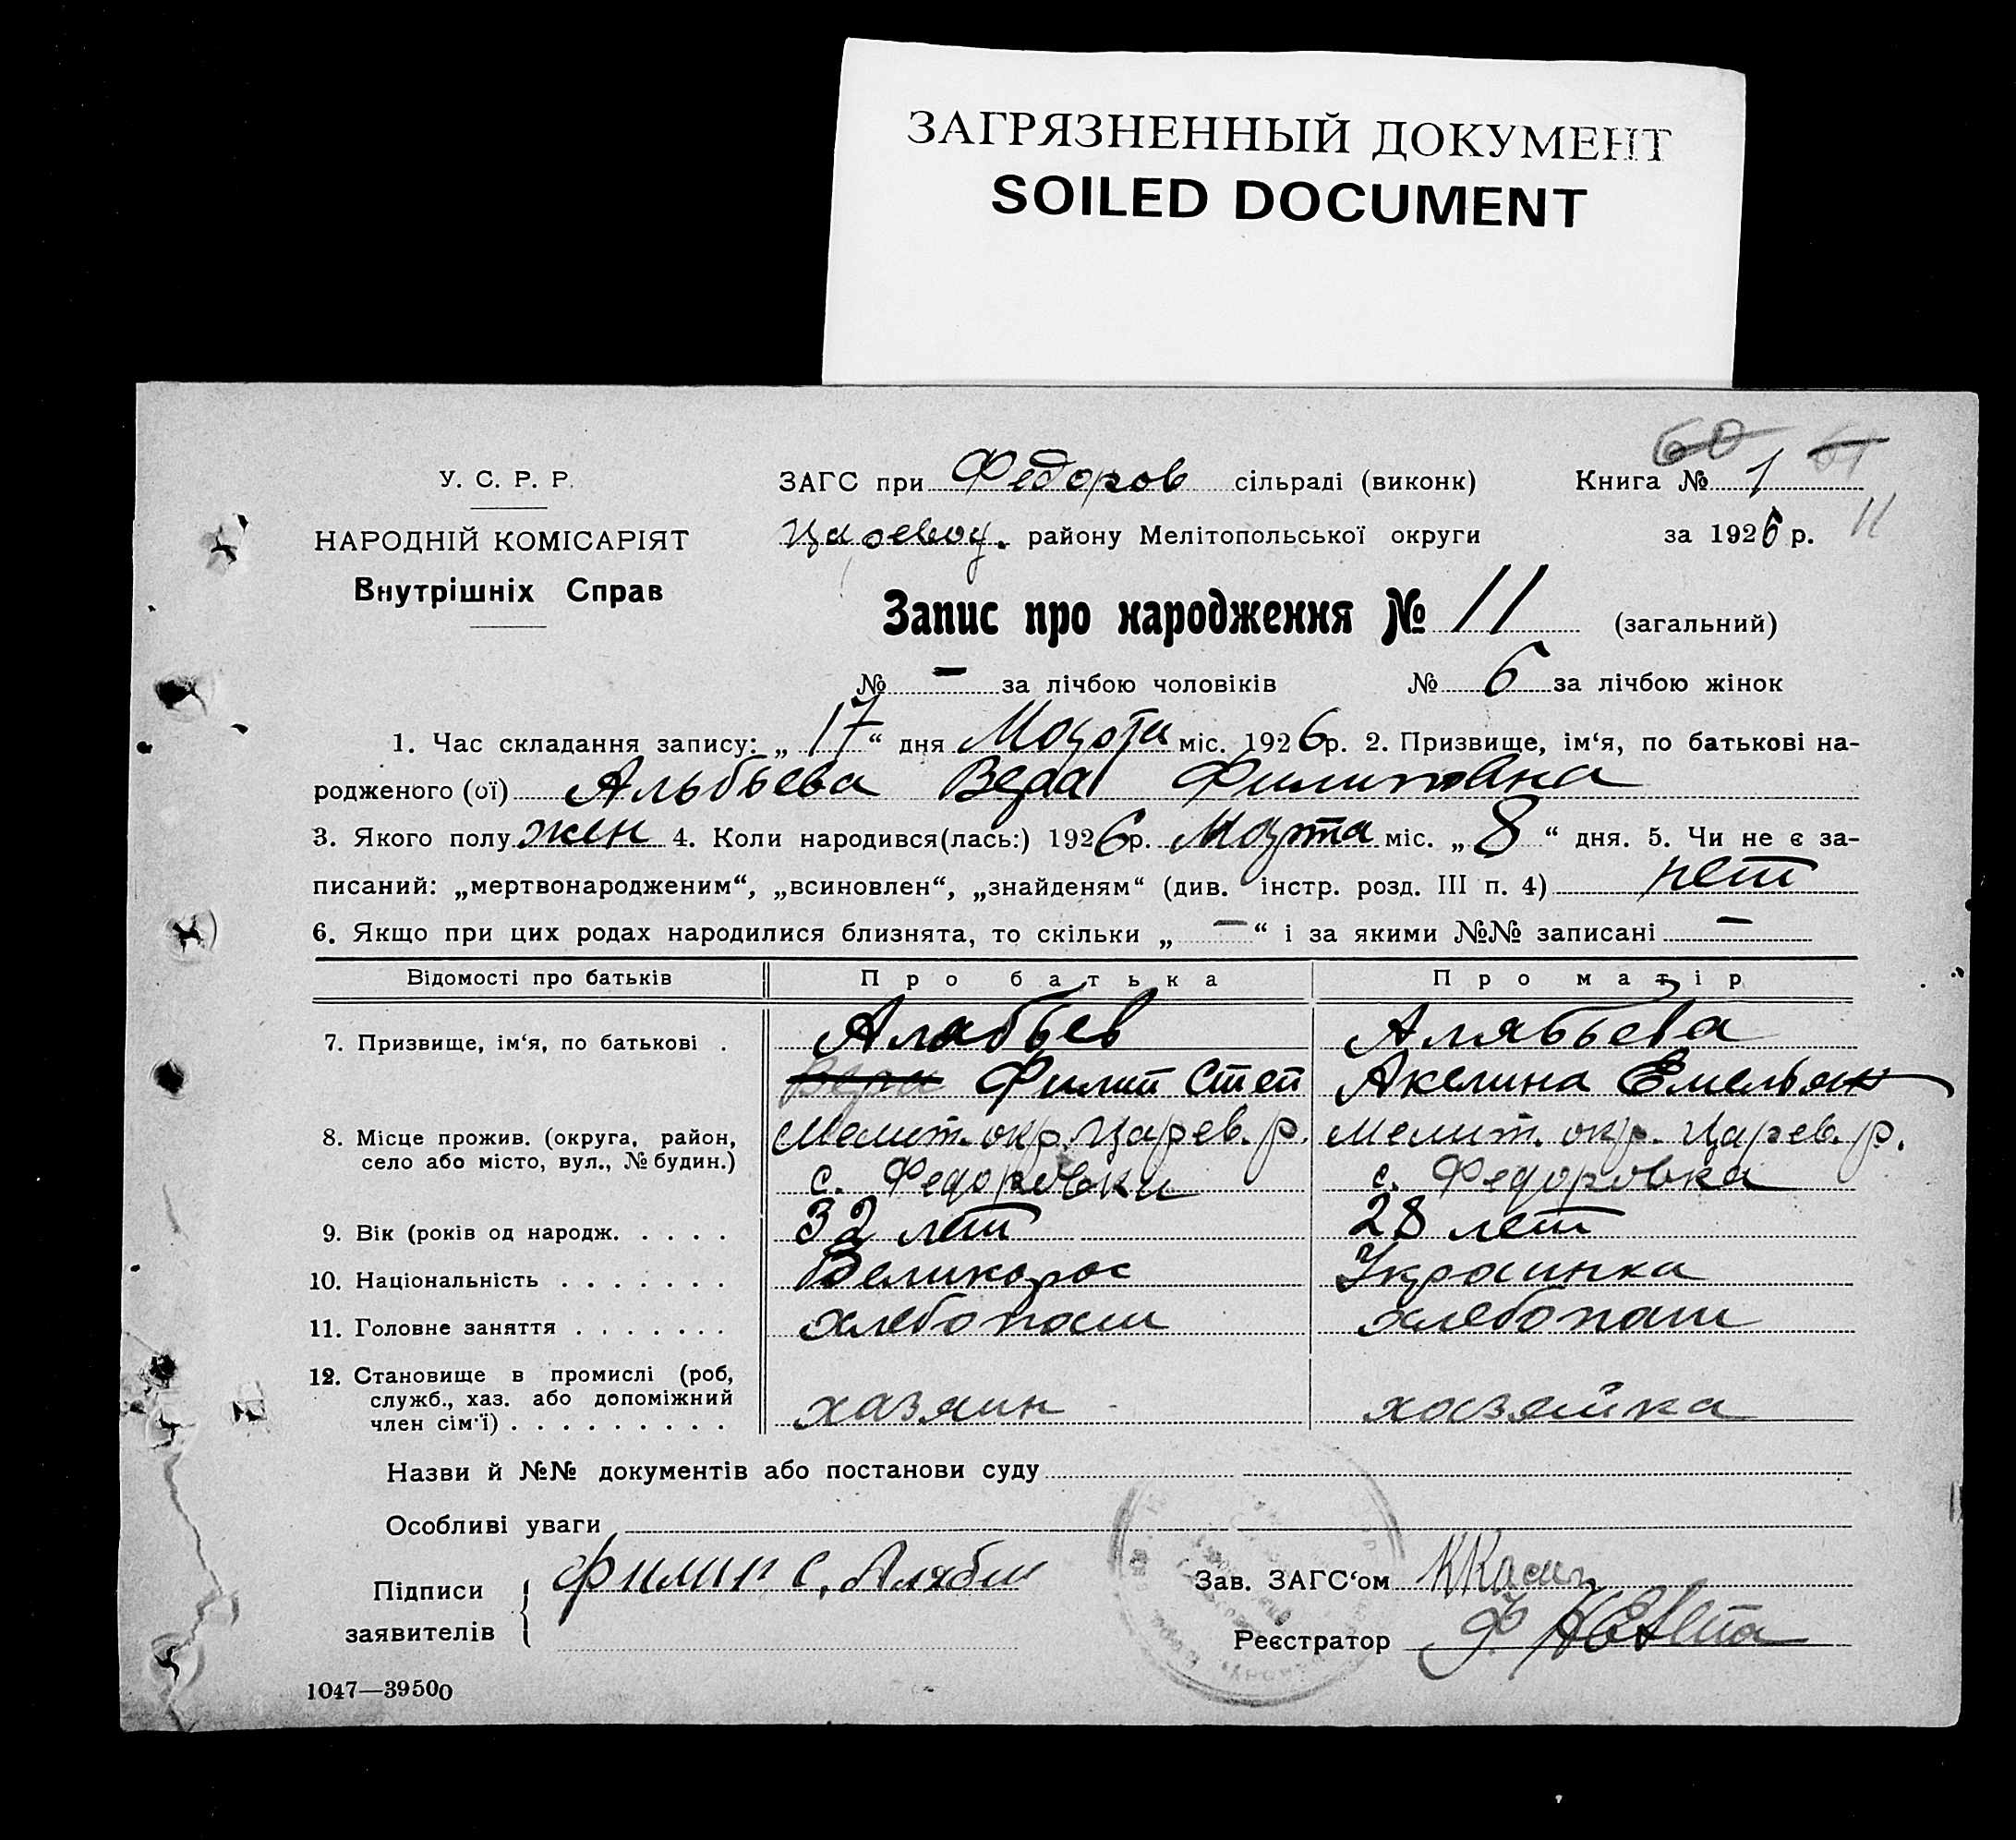 ЗАГРЯЗНЕННЫЙ ДОКУМЕНТ
SOILED DOCUMENT
60 61
У. С. Р. Р. ЗАГС при Федоров сільраді (виконк) Книга № 1
НАРОДНІЙ КОМІСАРІЯТ Царевод. району Мелітопольської округи за 1926 р. 11
Внутрішніх Справ
Запис про народження № 11 (загальний)
№ — за лічбою чоловіків № 6 за лічбою жінок
1. Час складання запису: „ 17 “ дня Марта міс. 1926 р. 2. Призвище, ім‘я, по батькові на-
родженого (ої) Альбьева Вера Филиповна
3. Якого полу жен 4. Коли народився(лась:) 1926 р. Марта міс. „ 8 “ дня. 5. Чи не є за-
писаний: „мертвонародженим“, „всиновлен“, „знайденям“ (див. інстр. розд. III п. 4) нет
6. Якщо при цих родах народилися близнята, то скільки „ — “ і за якими №№ записані —
Відомості про батьків Про батька Про матір
7. Призвище, ім‘я, по батькові . Алабьев Алябьева
Вера Филип Степ Акелина Емельян
8. Місце прожив. (округа, район, Мелит. окр. Царев. р. Мелит. окр. Царев. р.
село або місто, вул., № будин.) с. Федоровки с. Федоровка
9. Вік (років од народж. . . . . 32 лет 28 лет
10. Національність . . . . . . . Великорос Украинка
11. Головне заняття . . . . . . . хлебопаш хлебопаш
12. Становище в промислі (роб,
служб., хаз. або допоміжний хазяин хозяйка
член сім‘ї) . . . . . . . . .
Назви й №№ документів або постанови суду
Особливі уваги
Підписи Филип С. Алябьи Зав. ЗАГС‘ом
заявителів Реєстратор
1047—39500